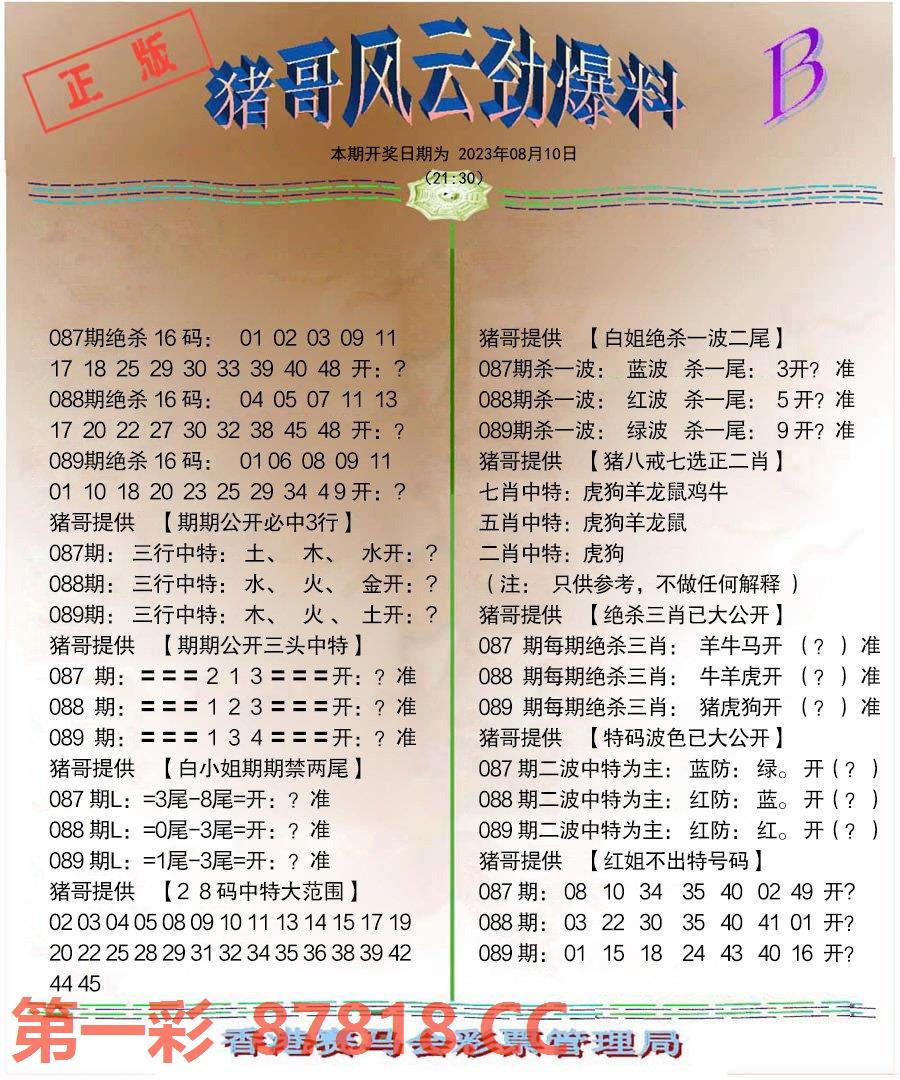 正版
猪哥风云劲爆料
B
本期开奖日期为 2023年08月10日
(21:30)
087期绝杀 16 码： 01 02 03 09 11
17 18 25 29 30 33 39 40 48 开：?
088期绝杀 16 码： 04 05 07 11 13
17 20 22 27 30 32 38 45 48 开：?
089期绝杀 16 码： 01 06 08 09 11
01 10 18 20 23 25 29 34 4 9 开：?
猪哥提供 【期期公开必中3行】
087期： 三行中特： 土、 木、 水开：?
088期： 三行中特： 水、 火、 金开：?
089期： 三行中特： 木、 火 、 土开：?
猪哥提供 【期期公开三头中特】
087 期：＝＝＝ 2 1 3 ＝＝＝开：? 准
088 期：＝＝＝ 1 2 3 ＝＝＝开：? 准
089 期：＝＝＝ 1 3 4 ＝＝＝开：? 准
猪哥提供 【白小姐期期禁两尾】
087 期L：=3尾-8尾=开：? 准
088 期L：=0尾-3尾=开：? 准
089 期L：=1尾-3尾=开：? 准
猪哥提供 【2 8 码中特大范围】
02 03 04 05 08 09 10 11 13 14 15 17 19
20 22 25 28 29 31 32 34 35 36 38 39 42
44 45
猪哥提供 【白姐绝杀一波二尾】
087期杀一波： 蓝波 杀一尾： 3开? 准
088期杀一波： 红波 杀一尾： 5 开? 准
089期杀一波： 绿波 杀一尾： 9 开? 准
猪哥提供 【猪八戒七选正二肖】
七肖中特：虎狗羊龙鼠鸡牛
五肖中特：虎狗羊龙鼠
二肖中特：虎狗
（注： 只供参考，不做任何解释 ）
猪哥提供 【绝杀三肖已大公开】
087 期每期绝杀三肖： 羊牛马开 （? ）准
088 期每期绝杀三肖： 牛羊虎开 （? ）准
089 期每期绝杀三肖： 猪虎狗开 （? ）准
猪哥提供 【特码波色已大公开】
087 期二波中特为主：蓝防：绿。 开 (? )
088 期二波中特为主：红防：蓝。 开 (? )
089 期二波中特为主：红防：红。 开 (? )
猪哥提供 【红姐不出特号码】
087 期： 08 10 34 35 40 02 49 开?
088 期： 03 22 30 35 40 41 01 开?
089 期： 01 15 18 24 43 40 16 开?
第一彩 87818.CC
香港赛马会彩票管理局